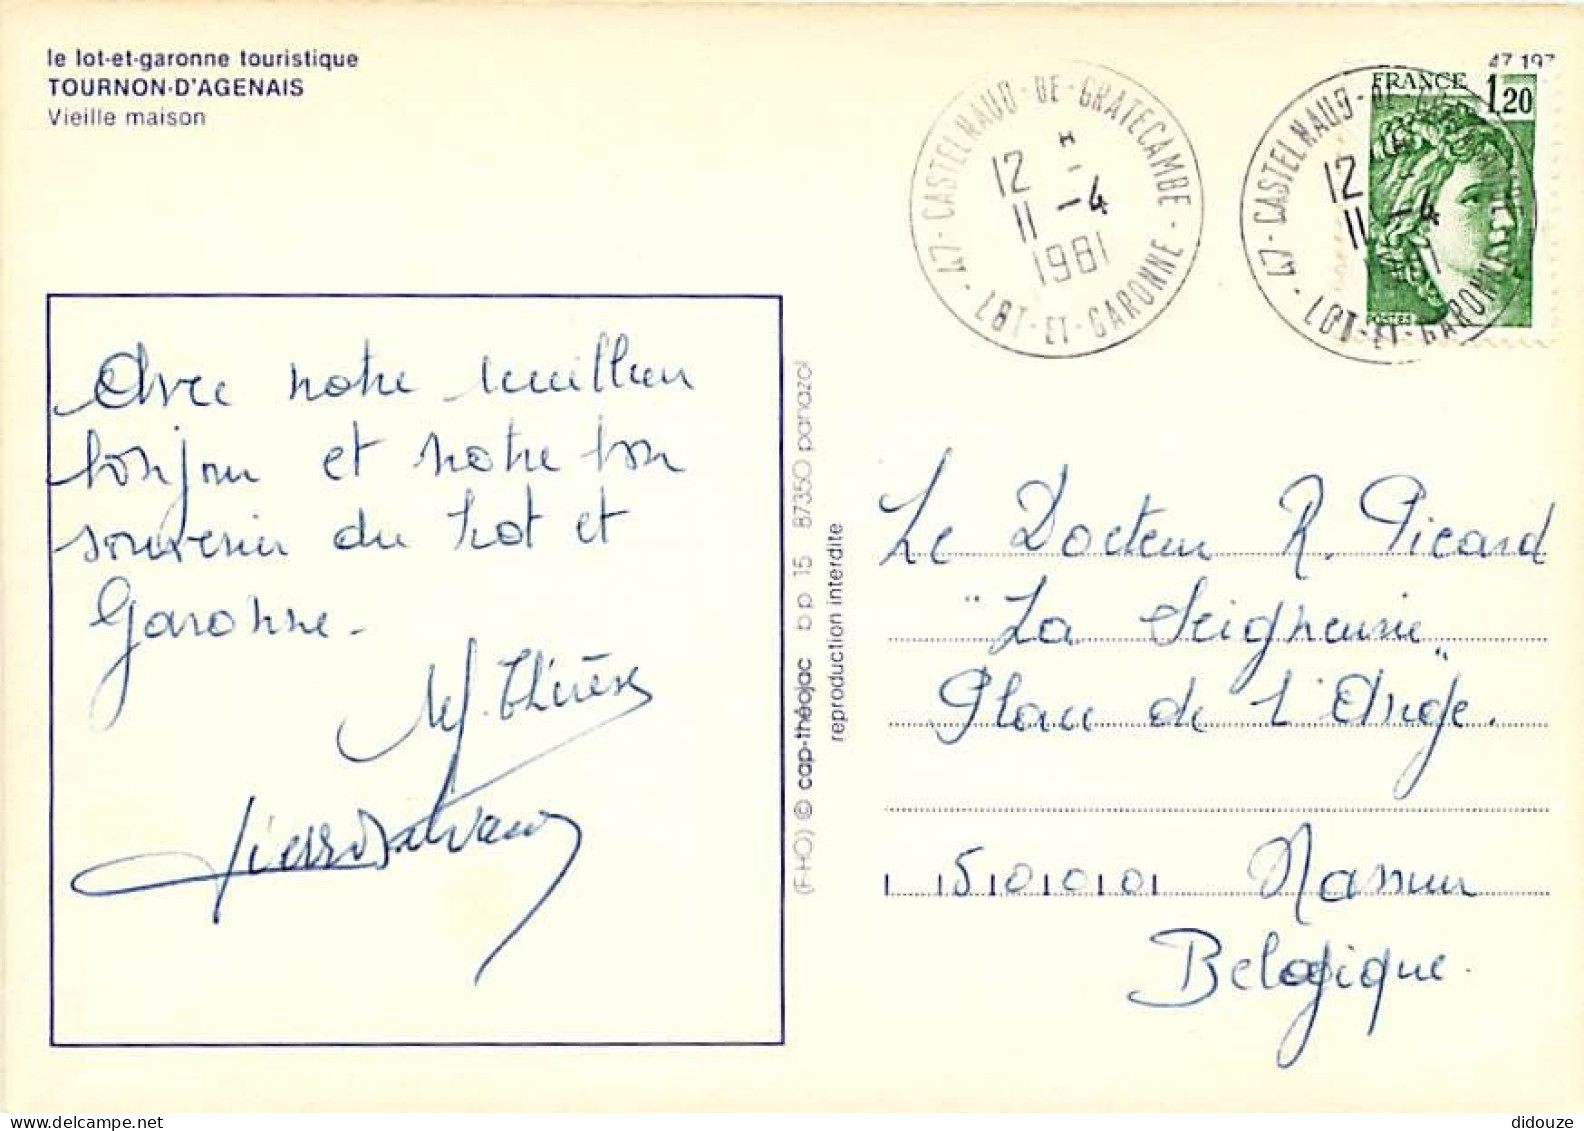 le lot-et-garonne touristique
TOURNON-D'AGENAIS
Vieille maison
47 197
FRANCE
1,20
POSTES
47 - CASTELNAUD-DE-GRATECAMBE - LOT-ET-GARONNE -
12 H
11 -4
1981
47 - CASTELNAUD-DE-GRATECAMBE - LOT-ET-GARONNE
12
11 -4
Avec notre meilleur
bonjour et notre bon
souvenir du Lot et
Garonne.
M. Thérèse
Pierre
(FHO) © cap-théojac bp 15 87350 panazol
reproduction interdite
Le Docteur R. Picard
"La Seigneurie"
Place de l'Ange.
5000 Namur
Belgique.
didouze